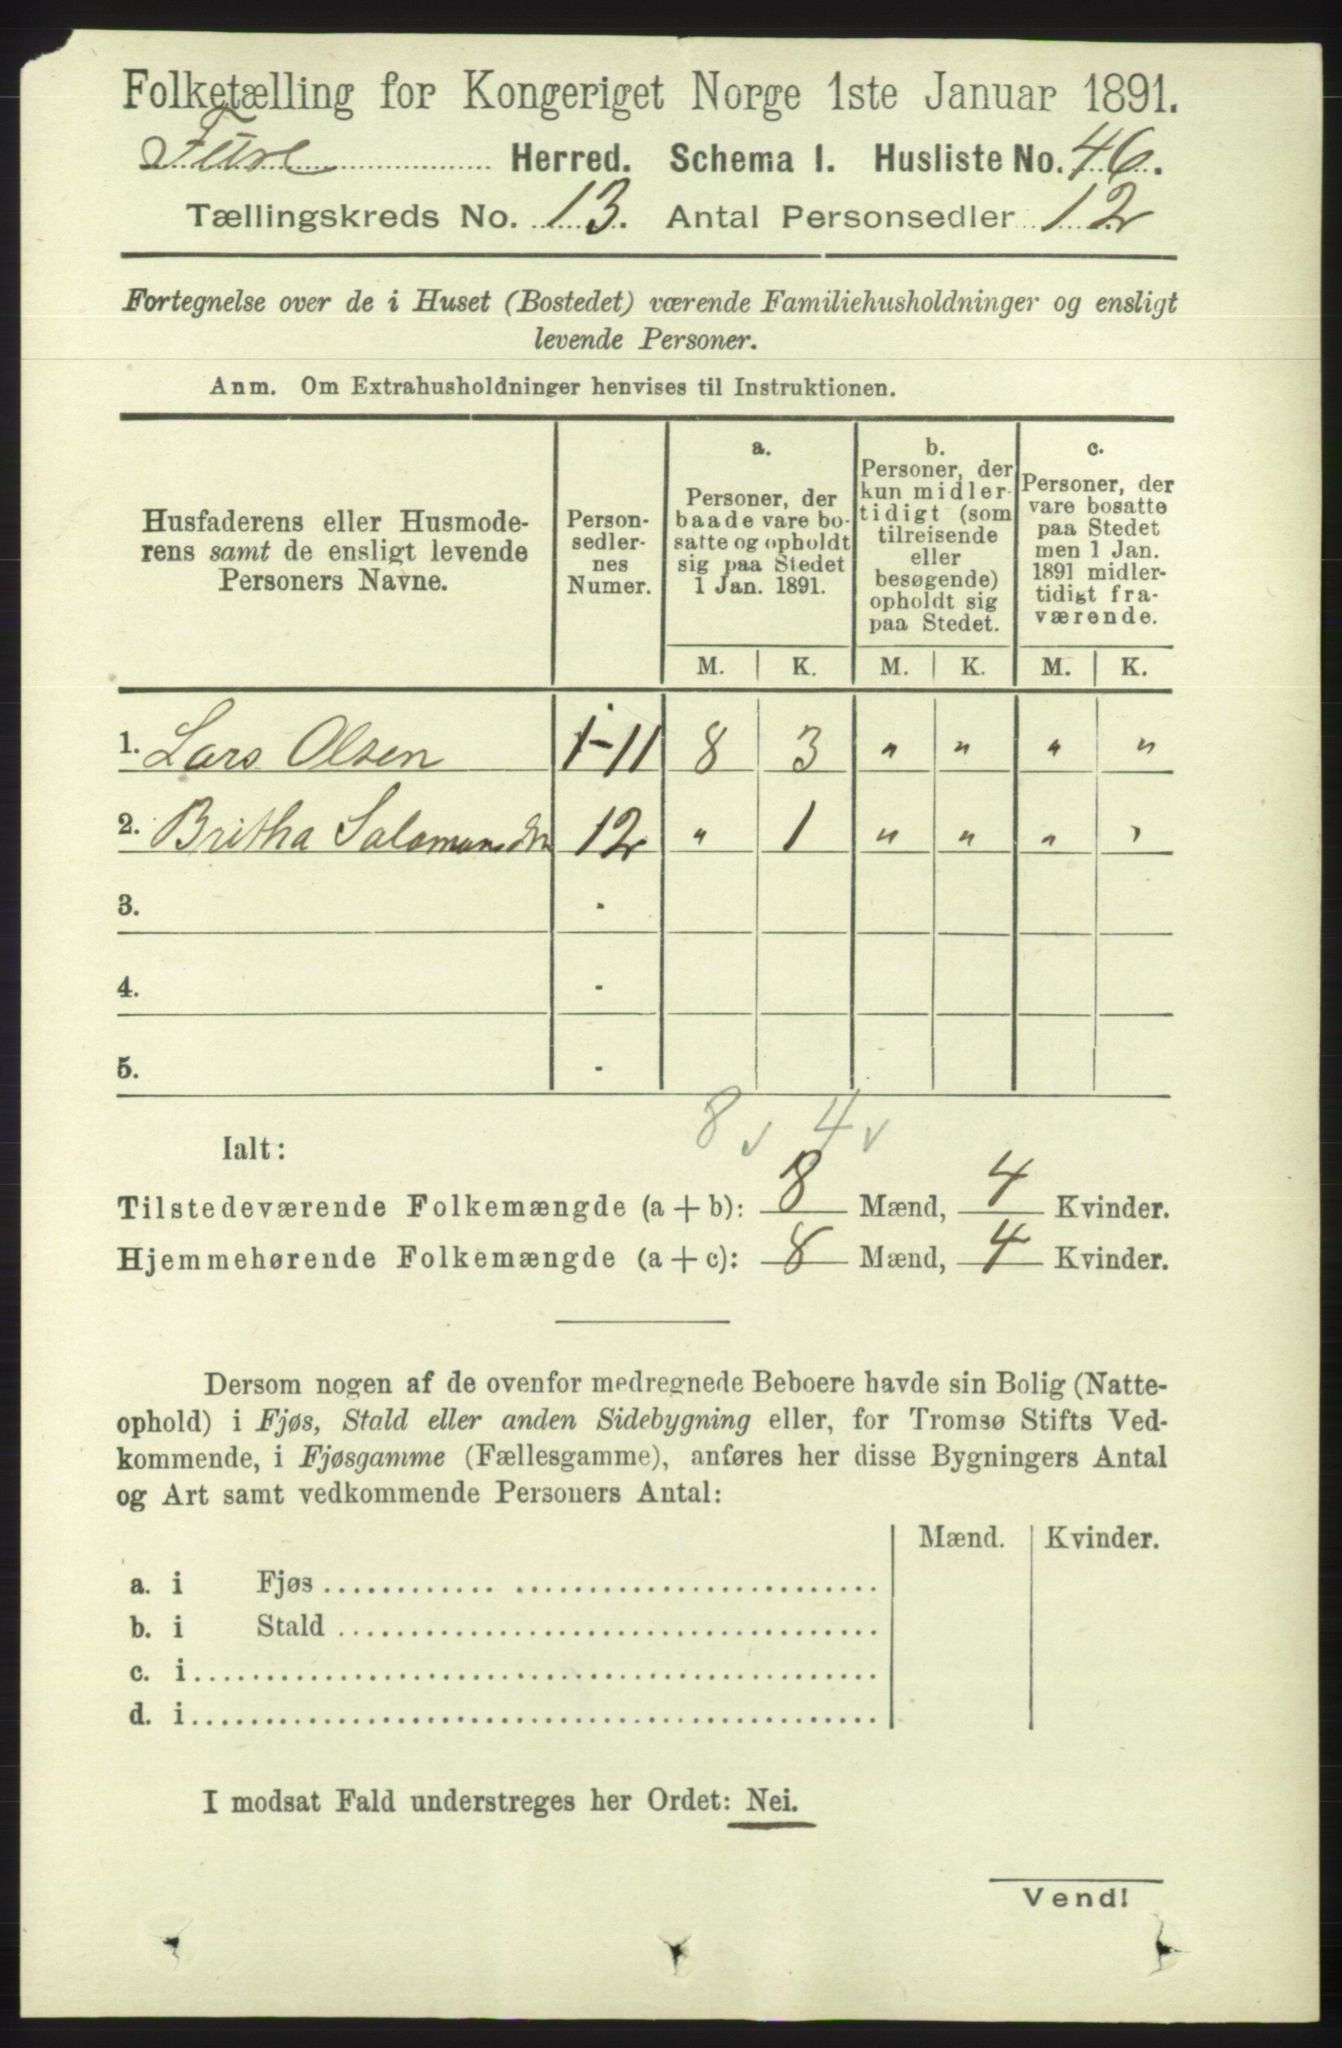 Folketælling for Kongeriget Norge 1ste Januar 1891.
Fure Herred. Schema 1. Husliste No. 46.
Tællingskreds No. 13. Antal Personsedler 12
Fortegnelse over de i Huset (Bostedet) værende Familiehusholdninger og ensligt
levende Personer.
Anm. Om Extrahusholdninger henvises til Instruktionen.
Husfaderens eller Husmode-
rens samt de ensligt levende
Personers Navne.
Person-
sedler-
nes
Numer.
a.
Personer, der
baade vare bo-
satte og opholdt
sig paa Stedet
1 Jan. 1891.
b.
Personer, der
kun midler-
tidigt (som
tilreisende
eller
besøgende)
opholdt sig
paa Stedet.
c.
Personer, der
vare bosatte
paa Stedet
men 1 Jan.
1891 midler-
tidigt fra-
værende.
M. K. M. K. M. K.
1. Lars Olsen 1-11 8 3 " " " "
2. Britha Salamonsdtr 12 " 1 " " " "
3. -
4. -
5. -
8 v 4 v
Ialt:
Tilstedeværende Folkemængde (a + b): 8 Mænd, 4 Kvinder.
Hjemmehørende Folkemængde (a + c): 8 Mænd, 4 Kvinder.
Dersom nogen af de ovenfor medregnede Beboere havde sin Bolig (Natte-
ophold) i Fjøs, Stald eller anden Sidebygning eller, for Tromsø Stifts Ved-
kommende, i Fjøsgamme (Fællesgamme), anføres her disse Bygningers Antal
og Art samt vedkommende Personers Antal:
Mænd. Kvinder.
a. i Fjøs
b. i Stald
c. i
d. i
I modsat Fald understreges her Ordet: Nei.
Vend!